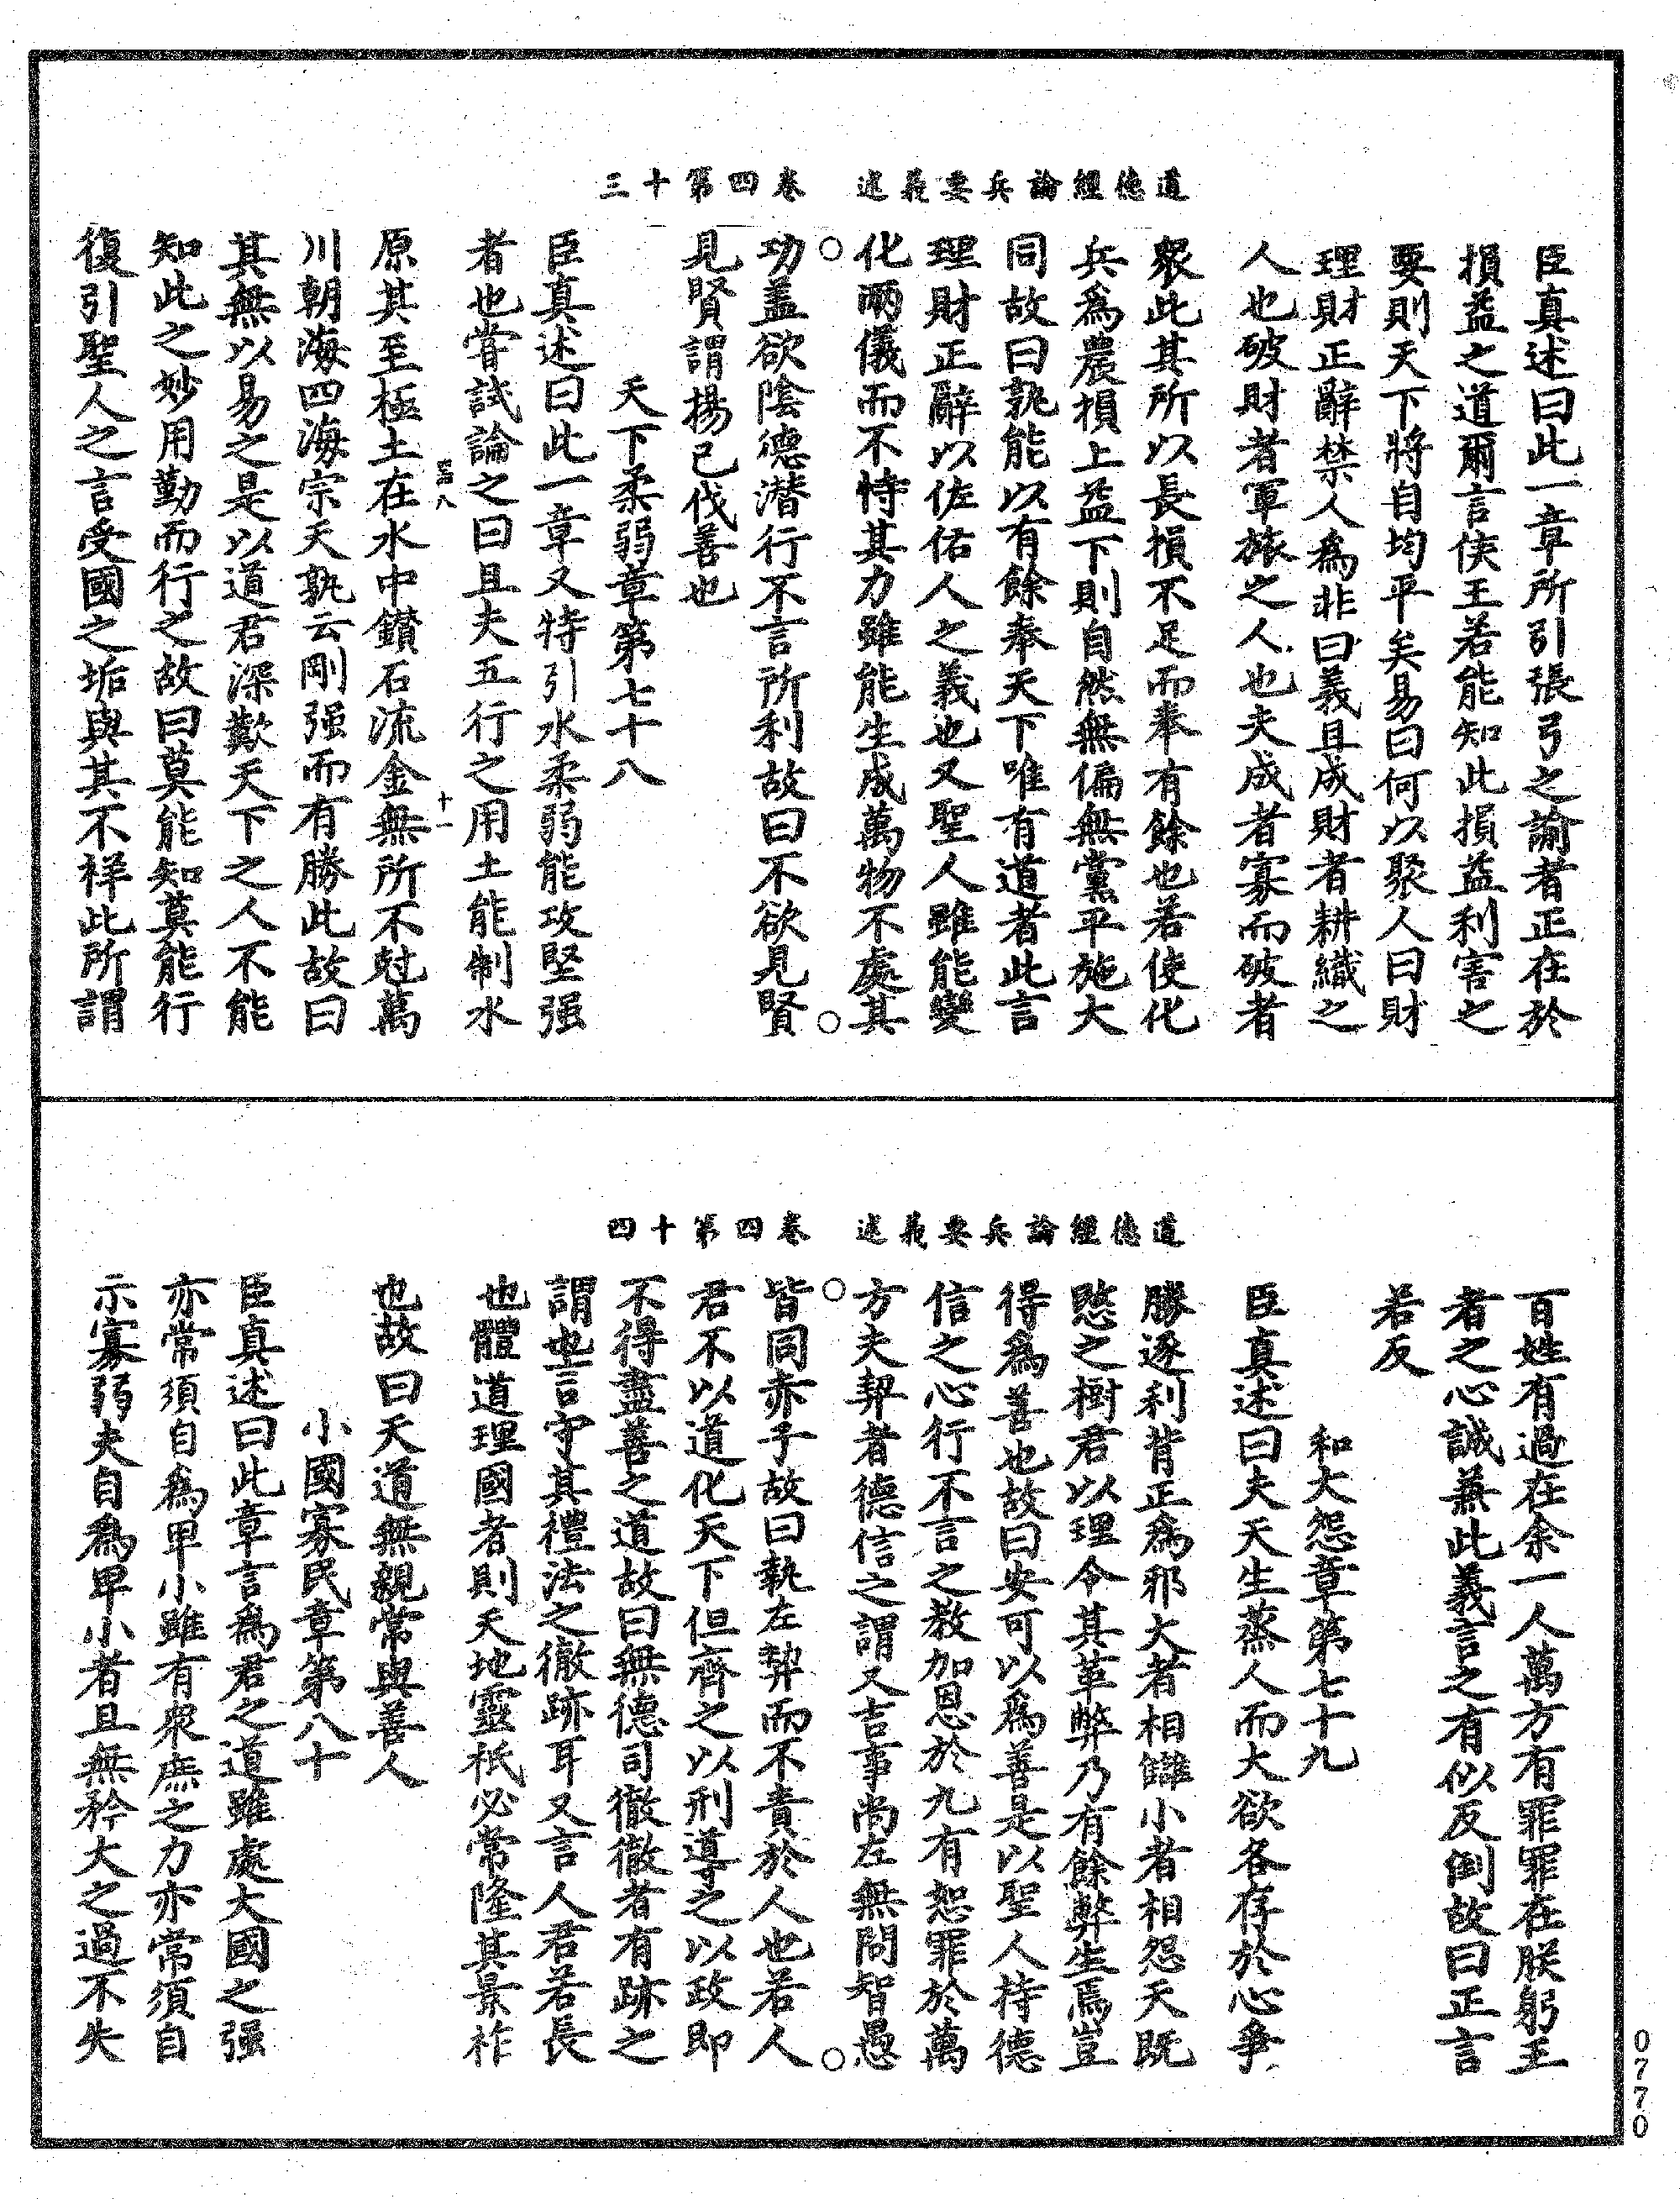 道德經論兵要義述　卷四第十三
臣真述曰此一章所引張弓之諭者正在於
損益之道爾言侯王若能知此損益利害之
要則天下將自均平矣易曰何以聚人曰財
理財正辭禁人為非曰義且成財者耕織之
人也破財者軍旅之人也夫成者寡而破者
衆此其所以長損不足而奉有餘也若使化
兵為農損上益下則自然無偏無黨平施大
同故曰孰能以有餘奉天下唯有道者此言
理財正辭以佐佑人之義也又聖人雖能變
化兩儀而不恃其力雖能生成萬物不處其
功盖欲陰德潛行不言所利故曰不欲見賢
見賢謂揚己伐善也
天下柔弱章第七十八
臣真述曰此一章又特引水柔弱能攻堅强
者也嘗試論之曰且夫五行之用土能制水
原其至極土在水中鑚石流金無所不尅萬
川朝海四海宗天孰云剛强而有勝此故曰
其無以易之是以道君深歎天下之人不能
知此之妙用勤而行之故曰莫能知莫能行
復引聖人之言受國之垢與其不祥此所謂
八
十一
道德經論兵要義述　卷四第十四
百姓有過在余一人萬方有罪罪在朕躬王
者之心誠兼此義言之有似反倒故曰正言
若反
和大怨章第七十九
臣真述曰夫天生蒸人而大欲各存於心爭
勝逐利背正為邪大者相讎小者相怨天既
愍之樹君以理令其革弊乃有餘弊生焉豈
得為善也故曰安可以為善是以聖人持德
信之心行不言之教加恩於九有恕罪於萬
方夫契者德信之謂又吉事尚左無問智愚
皆同赤子故曰執左契而不責於人也若人
君不以道化天下但齊之以刑導之以政即
不得盡善之道故曰無德司徹徹者有跡之
謂也言守其禮法之徹跡耳又言人君若長
也體道理國者則天地靈祇必常隆其景祚
也故曰天道無親常與善人
小國寡民章第八十
臣真述曰此章言為君之道雖處大國之强
亦常須自為卑小雖有衆庶之力亦常須自
示寡弱夫自為卑小者且無矜大之過不失
0770